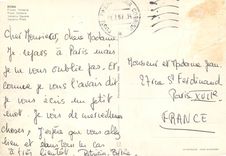 ROMA
Cher Monsieur, chère Madame
Je repars à Paris mais
je ne vous oublie pas. Et
comme je vous l'avais dit
je vous écris un petit
mot. Je vois de merveilleuses
choses. J'espère que vous allez
bien et
à très bientôt
Monsieur et Madame Jean
27 rue St Ferdinand
Paris XVIIe
FRANCE